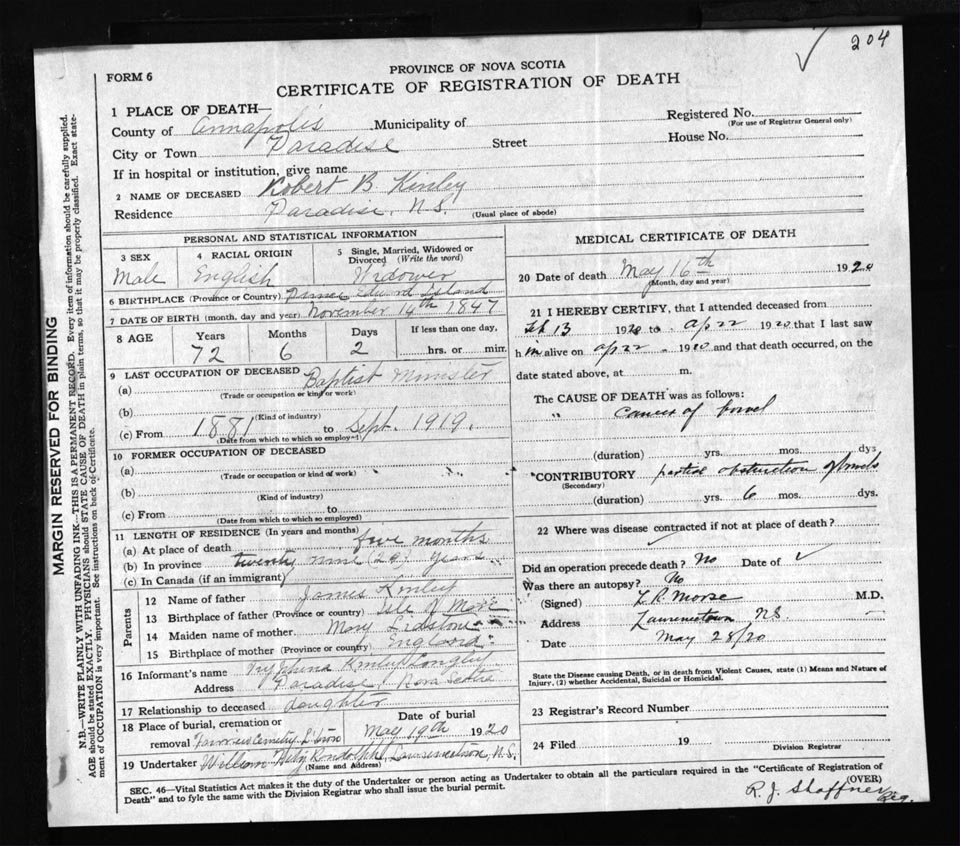 204
FORM 6
PROVINCE OF NOVA SCOTIA
CERTIFICATE OF REGISTRATION OF DEATH
MARGIN RESERVED FOR BINDING
N.B.—WRITE PLAINLY WITH UNFADING INK—THIS IS A PERMANENT RECORD. Every item of information should be carefully supplied.
AGE should be stated EXACTLY. PHYSICIANS should STATE CAUSE OF DEATH in plain terms, so that it may be properly classified. Exact state-
ment of OCCUPATION is very important. See instructions on back of Certificate.
1 PLACE OF DEATH—
County of Annapolis Municipality of
Registered No.
(For use of Registrar General only)
City or Town Paradise Street House No.
If in hospital or institution, give name
2 NAME OF DECEASED Robert B. Kinley
Residence Paradise, N.S. (Usual place of abode)
PERSONAL AND STATISTICAL INFORMATION
3 SEX Male
4 RACIAL ORIGIN English
5 Single, Married, Widowed or
Divorced (Write the word)
Widower
6 BIRTHPLACE (Province or Country) Prince Edward Island
7 DATE OF BIRTH (month, day and year) November 14th 1847
8 AGE Years Months Days If less than one day,
72 6 2 hrs. or min.
9 LAST OCCUPATION OF DECEASED
(a) Baptist Minister
(Trade or occupation or kind of work)
(b)
(Kind of industry)
(c) From 1881 to Sept. 1919.
(Date from which to which so employed)
10 FORMER OCCUPATION OF DECEASED
(a)
(Trade or occupation or kind of work)
(b)
(Kind of industry)
(c) From to
(Date from which to which so employed)
11 LENGTH OF RESIDENCE (In years and months)
(a) At place of death five months
(b) In province twenty nine (29) years
(c) In Canada (if an immigrant)
Parents
12 Name of father James Kinley
13 Birthplace of father (Province or country) Isle of Man
14 Maiden name of mother Mary Lidstone
15 Birthplace of mother (Province or country) England
16 Informant's name Tryphena Kinley Longley
Address Paradise, Nova Scotia
17 Relationship to deceased daughter
18 Place of burial, cremation or
removal Cemetery
Date of burial
May 19th 1920
19 Undertaker William Randolph, Lawrencetown, N.S.
(Name and Address)
MEDICAL CERTIFICATE OF DEATH
20 Date of death May 16th 1920
(Month, day and year)
21 I HEREBY CERTIFY, that I attended deceased from
Feb 13 1920 to Ap 22 1920 that I last saw
h im alive on Ap 22 1920 and that death occurred, on the
date stated above, at m.
The CAUSE OF DEATH was as follows:
" cancer of bowel
(duration) yrs. mos. dys
CONTRIBUTORY partial obstruction of bowels
(Secondary)
(duration) yrs. 6 mos. dys.
22 Where was disease contracted if not at place of death?
Did an operation precede death? No Date of
Was there an autopsy? No
(Signed) L R Morse M.D.
Address Lawrencetown NS.
Date May 28/20
State the Disease causing Death, or in death from Violent Causes, state (1) Means and Nature of
Injury, (2) whether Accidental, Suicidal or Homicidal.
23 Registrar's Record Number
24 Filed 19
Division Registrar
SEC. 46—Vital Statistics Act makes it the duty of the Undertaker or person acting as Undertaker to obtain all the particulars required in the "Certificate of Registration of
Death" and to fyle the same with the Division Registrar who shall issue the burial permit.
(OVER)
R. J. Shaffner Reg.